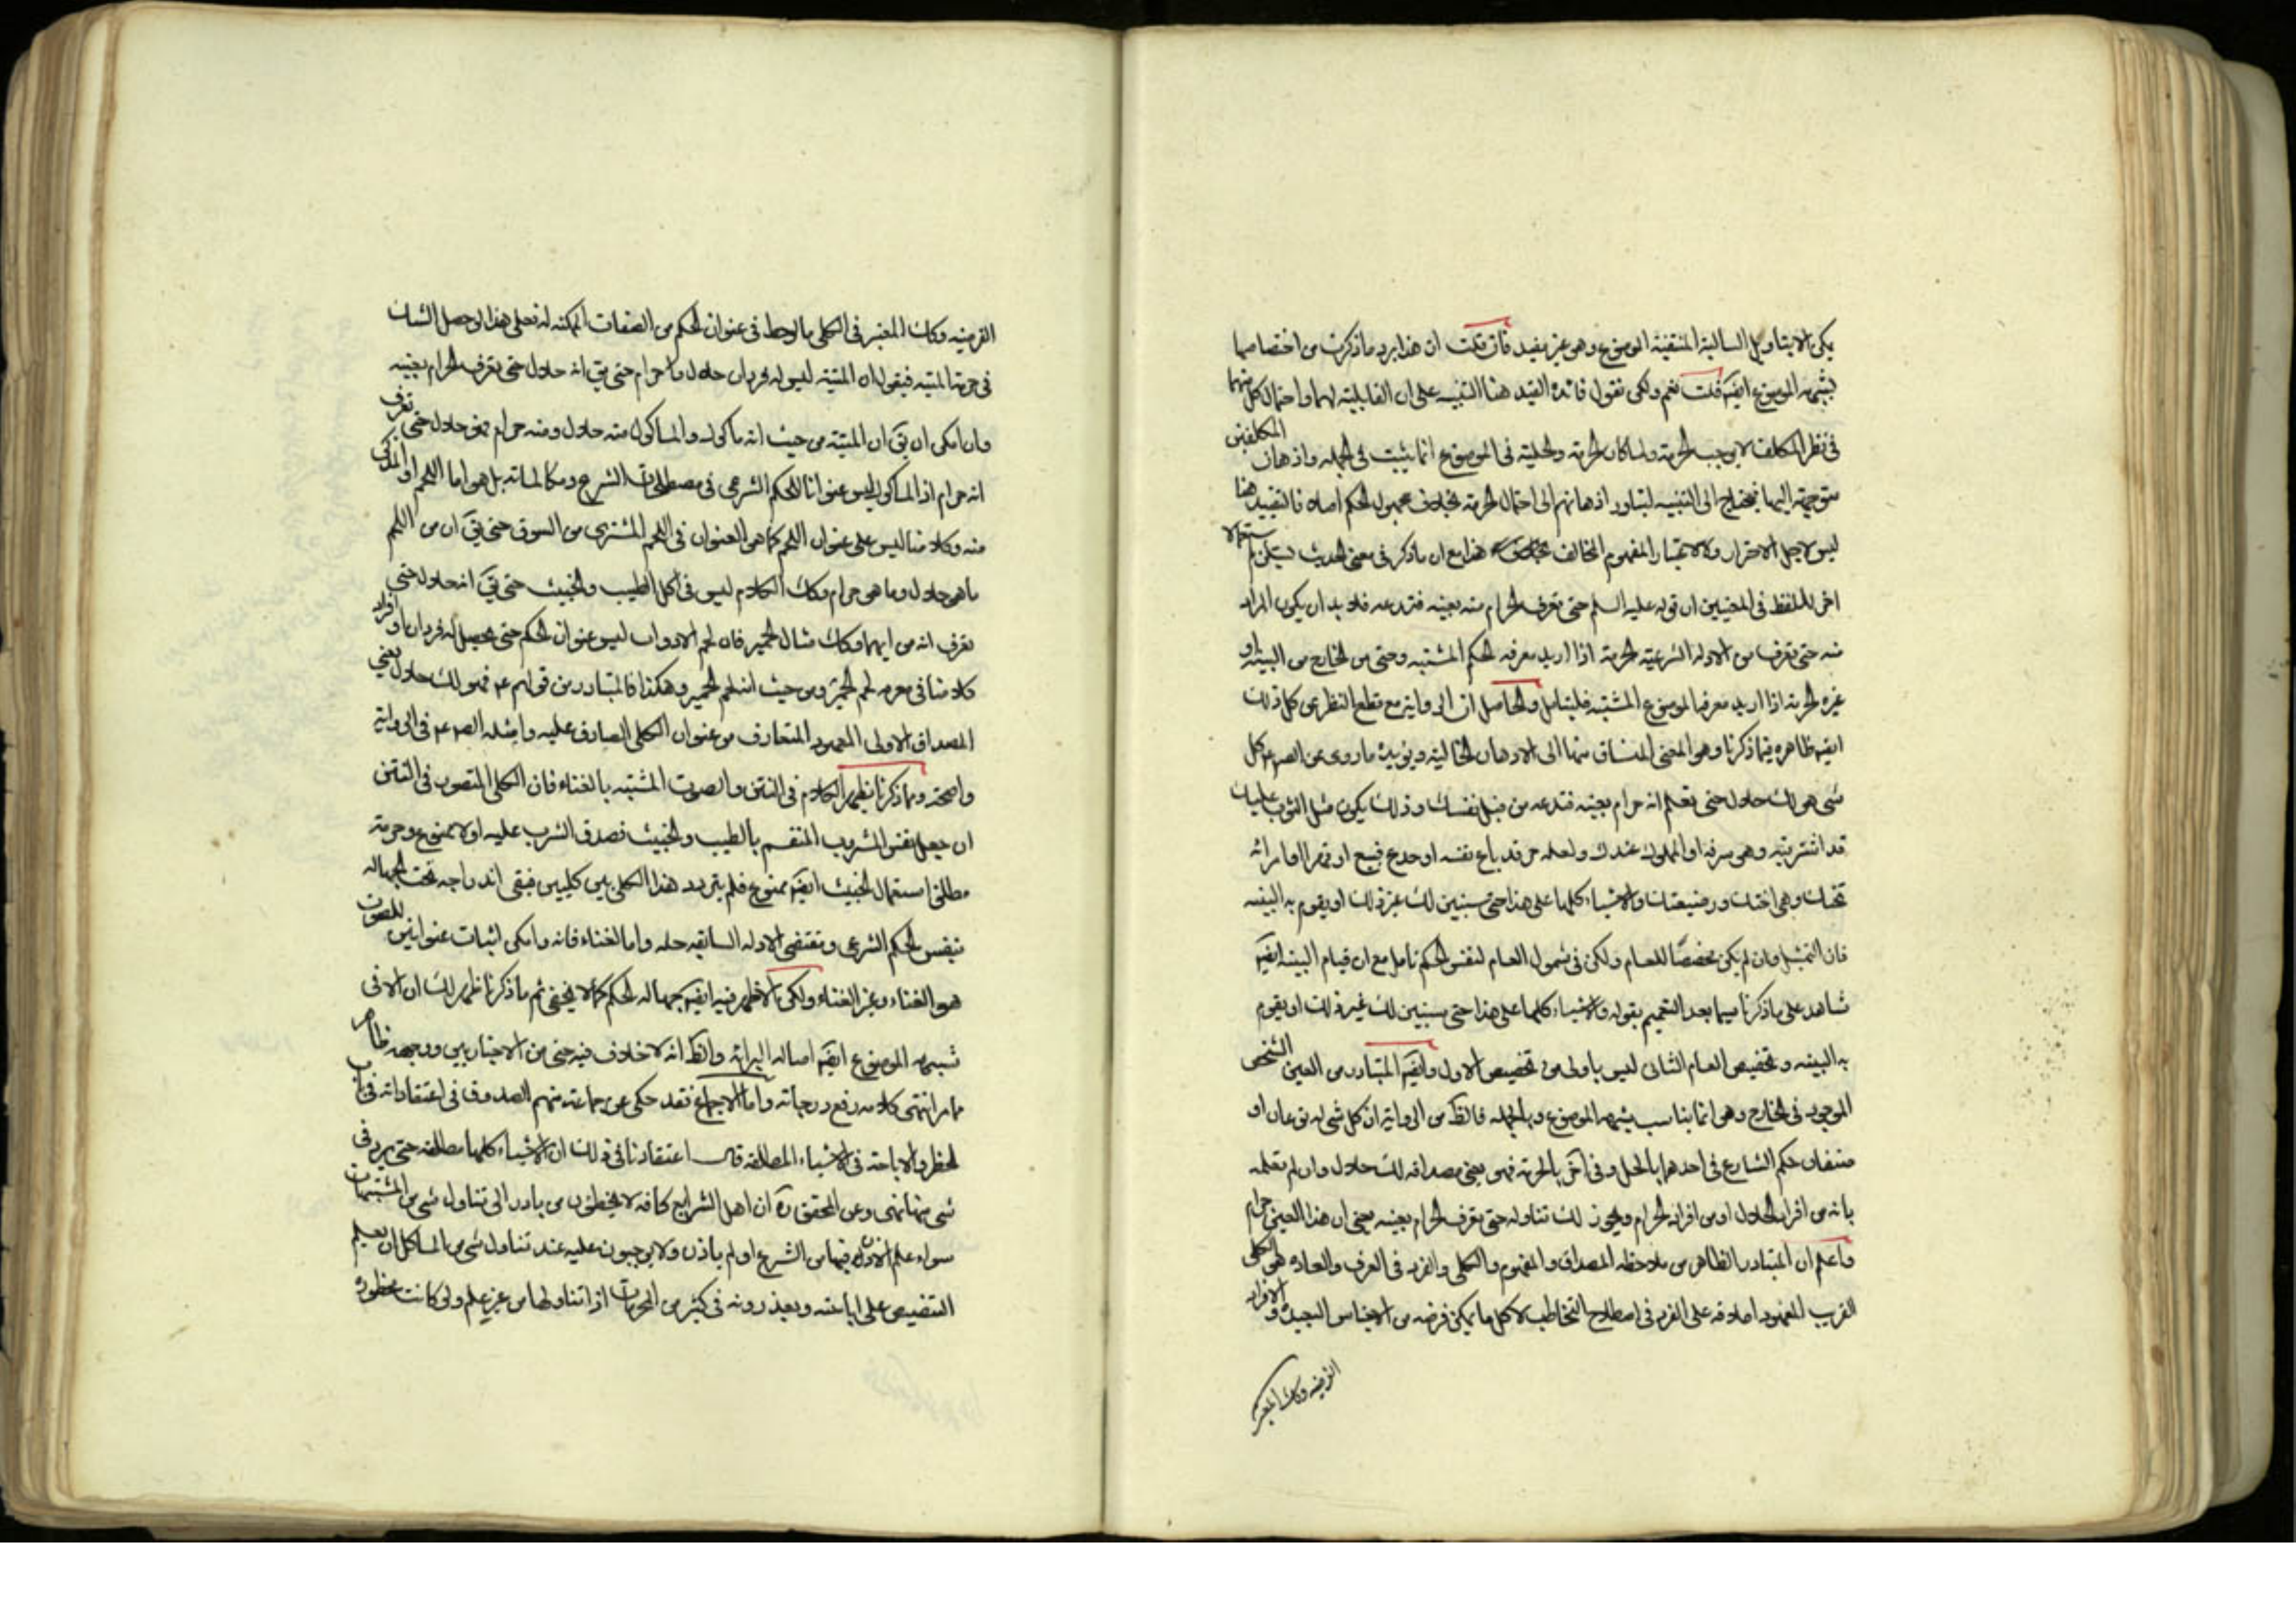 يكن الا بتاويل السالبة المنتفية الموضوع وهو غير مفيد فان قلت ان هذا يرد ما ذكرت من اختصاصها
بشبهه الموضوع ايضا قلت نعم ولكن نقول فائدة القيد هنا التنبيه على ان القابلية لهما واحتمال كل منهما
في نظر المكلف لا يوجب الحرمة ولما كان الحرمة والحلية في الموضوع انما يثبت في الجملة واذهان المكلفين
متوجهة اليها فيحتاج الى التنبيه لتبادر اذهانهم الى احتمال الحرمة بخلاف مجهول الحكم اصلا فالتقييد هنا
ليس لاجل الاحتراز ولا لاعتبار المفهوم المخالف هذا مع ان ما ذكر في معنى الحديث يستلزم استعمالا
اخر للفظ في المعنيين ان قوله عليه السلم حتى تعرف الحرام منه بعينه فتدعه فلا بد ان يكون المراد
منه حتى تعرف من الادلة الشرعية الحرمة اذا اريد معرفة الحكم المشتبه وحتى من الخارج من البينة او
غيره الحرمة اذا اريد معرفة الموضوع المشتبه فليتامل والحاصل ان الرواية مع قطع النظر عن كل ذلك
ايضا ظاهرة فيما ذكرنا وهو المعنى المنساق منها الى الاذهان الخالية ويؤيده ما روي عن الصم كل
شي هو لك حلال حتى تعلم انه حرام بعينه فتدعه من قبل نفسك وذلك يكون مثل الثوب عليك
قد اشتريته وهو سرقة او المملوك عندك ولعله حر قد باع نفسه او خدع فبيع او قهر او امراة
تحتك وهي اختك او رضيعتك والاشياء كلها على هذا حتى يستبين لك غير ذلك او يقوم به البينه
فان التمثيل وان لم يكن مخصصا للعام ولكن في شمول العام لنفس الحكم تامل مع ان قيام البينة ايضا
شاهد على ما ذكرنا سيما بعد التعميم بقوله والاشياء كلها على هذا حتى يستبين لك غير ذلك او يقوم
به البينه وتخصيص العام الثاني ليس باولى من تخصيص الاول وايضا المتبادر من العين الشخص
الموجود في الخارج وهو انما يناسب بشبهه الموضوع وبالجملة فالظ من الرواية ان كل شي له نوعان او
صنفان حكم الشارع في احدهما بالحل وفي آخر بالحرمة فهو يعني مصداقه لك حلال وان لم تعلمه
بانه من افراد الحلال او من افراد الحرام ويجوز لك تناوله حتى تعرف الحرام بعينه يعني ان هذا العين حرام
واعلم ان المتبادر الظاهر من ملاحظة المصداق والمفهوم والكلي والفرد في العرف والعادة هو الكلي
القريب المعهود صادقه على الفرد في اصطلاح التخاطب لا كل ما يمكن فرضه من الاجناس البعيدة والافراد
الفرضيه وكك المعتبر
الفرضيه وكك المعتبر في الكلي مالوحظ في عنوان الحكم من الصفات الممكنة له فعلى هذا لو حصل الشك
في حرمة الميتة فيقول ان الميتة ليس له فردان حلال وحرام حتى يق انه حلال حتى تعرف الحرام بعينه
وان امكن ان يق ان الميتة من حيث انه ماكول والماكول منه حلال ومنه حرام فهو حلال حتى تعرف
انه حرام اذ الماكول ليس عنوانا للحكم الشرعي في مصطلحات الشرع ومكالماته بل هو اما اللحم او المذكى
منه وكلامنا ليس على عنوان اللحم كما هو العنوان في اللحم المشترى من السوق حتى يق ان من اللحم
ما هو حلال وما هو حرام وكك الكلام ليس في اكل الطيب والخبيث حتى يق انه حلال حتى
تعرف انه من ايهما وكك مثال الحمير فان لحم الادواب ليس عنوان الحكم حتى يحصل له فردان او افراد
كلامنا في حرمه لحم الحمير ومن حيث انه لحم الحمير وهكذا فالمتبادر من قولهم ع فهو لك حلال يعني
المصداق الاولى المعهود المتعارف من عنوان الكلي الصادق عليه وامثله الصم في الرواية
واضحة وما ذكرنا يظهر الكلام في التتن والصوت المشتبه بالغناء فان الكلي المتصور في التتن
ان جعل نفس المشروب المنقسم بالطيب والخبيث فصدق الشرب عليه اولا ممنوع وحرمة
مطلق استعمال الخبيث ايضا ممنوع فلم يتردد هذا الكلي بين كليين فبقي اندراجه تحت الجهاله
بنفس الحكم الشرعي ومقتضى الادلة السابقه حله واما الغناء فانه وامكن اثبات عنوانين للصوت
هو الغناء وغير الغناء ولكن الاظهر فيه ايضا جهالة الحكم كما لا يخفى ثم ما ذكرنا ظهر لك ان الاقوى
شبهه الموضوع ايضا اصالة البرائه والظ انه لا خلاف فيه حتى من الاخباريين ووجهه ظاهر
مما مر انتهى كلامه رفع درجاته واما الاجماع فقد حكى عن جماعة منهم الصدوق في اعتقاداته في باب
الحظر والاباحة في الاشياء المطلقه قال اعتقادنا في ذلك ان الاشياء كلها مطلقه حتى يرد في
شي منها نهي وعن المحقق ره ان اهل الشرايع كافة لا يخطئون من بادر الى تناول شي من المشتبهات
سواء علم الاذن فيها من الشرع او لم ياذن ولا يوجبون عليه عند تناول شي من الماكل ان يعلم
التنصيص على اباحته ويعذرونه في كثير من المحرمات اذا تناولها من غير علم ولو كانت محظورة